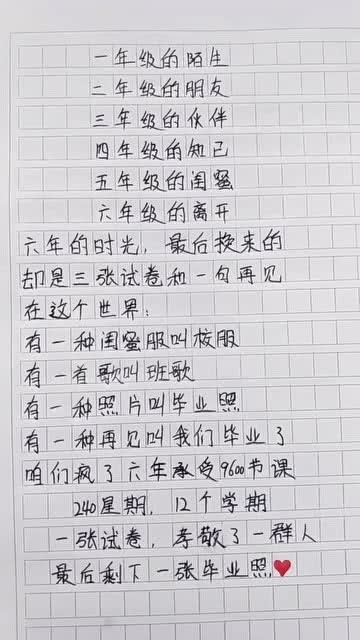 一年级的陌生
二年级的朋友
三年级的伙伴
四年级的知己
五年级的闺蜜
六年级的离开
六年的时光，最后换来的
却是三张试卷和一句再见
在这个世界：
有一种闺蜜服叫校服
有一首歌叫班歌
有一种照片叫毕业照
有一种再见叫我们毕业了
咱们疯了六年承受9600节课
240星期，12个学期
一张试卷，孝敬了一群人
最后剩下一张毕业照❤